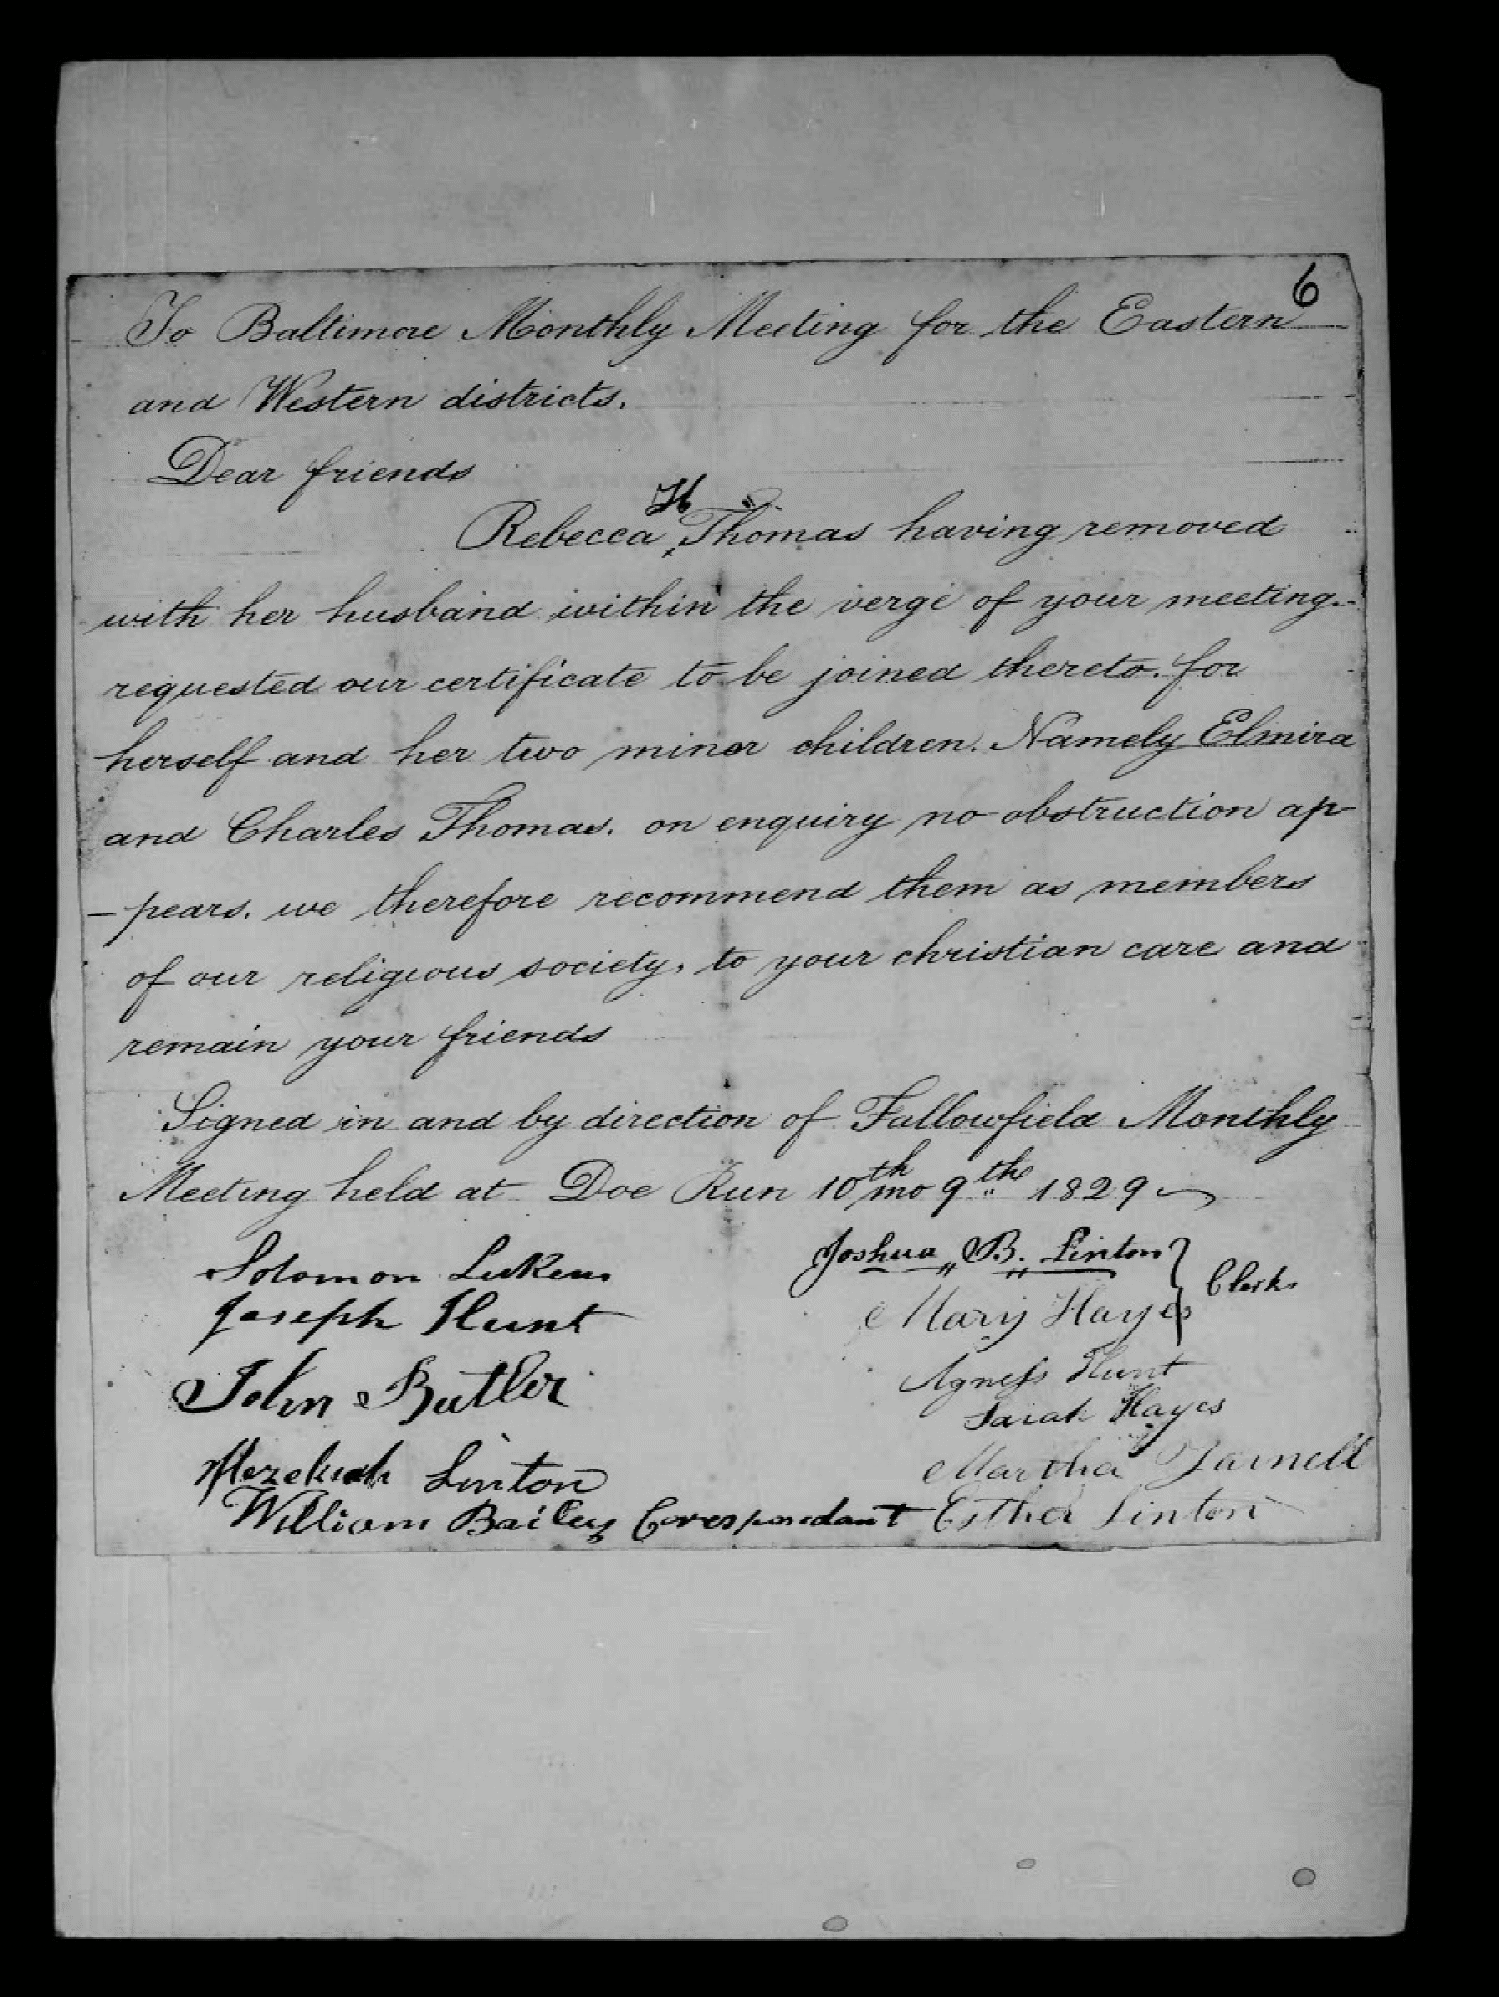 6
To Baltimore Monthly Meeting for the Eastern
and Western districts.
Dear friends
Rebecca H Thomas having removed
with her husband within the verge of your meeting.
requested our certificate to be joined thereto. for
herself and her two minor children. Namely Elmira
and Charles Thomas. on enquiry no obstruction ap-
-pears. we therefore recommend them as members
of our religious society, to your christian care and
remain your friends
Signed in and by direction of Fallowfield Monthly
Meeting held at Doe Run 10th mo 9th 1829
Solomon Lukens
Joseph Hunt
John Butler
Hezekiah Linton
William Bailey Corespondant
Joshua B. Linton
Mary Hayes
Clerks
Agness Hunt
Sarah Hayes
Martha Yarnell
Esther Linton